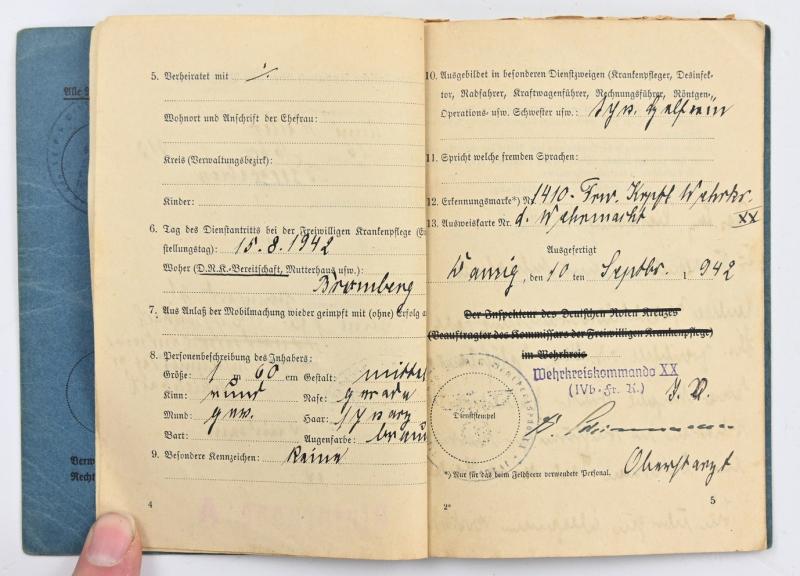 Alle
5. Verheiratet mit ./.
Wohnort und Anschrift der Ehefrau:
Kreis (Verwaltungsbezirk):
Kinder:
6. Tag des Dienstantritts bei der Freiwilligen Krankenpflege (Ei
stellungstag): 15.8.1942
Woher (D.R.K.-Bereitschaft, Mutterhaus usw.):
Bromberg
7. Aus Anlaß der Mobilmachung wieder geimpft mit (ohne) Erfolg a
8. Personenbeschreibung des Inhabers:
Größe: 1 m 60 cm Gestalt: mittel
Kinn: rund Nase: gerade
Mund: gew. Haar: schwarz
Bart: Augenfarbe: braun
9. Besondere Kennzeichen: Keine
4
Verw
Recht
10. Ausgebildet in besonderen Dienstzweigen (Krankenpfleger, Desinfek-
tor, Radfahrer, Kraftwagenführer, Rechnungsführer, Röntgen-,
Operations- usw. Schwester usw.: Schw. Helferin
11. Spricht welche fremden Sprachen:
12. Erkennungsmarke*) N 1410- Frw. Krpfl. Wehrkr.
13. Ausweiskarte Nr. d. Wehrmacht XX
Ausgefertigt
Danzig, den 10 ten Septbr. 1942
Der Inspekteur des Deutschen Roten Kreuzes
(Beauftragter des Kommissars der Freiwilligen Krankenpflege)
im Wehrkreis
Wehrkreiskommando XX
(IVb-Fr. K.)
J.V.
Dienststempel
Oberstarzt
*) Nur für das beim Feldheere verwendete Personal.
2*
5